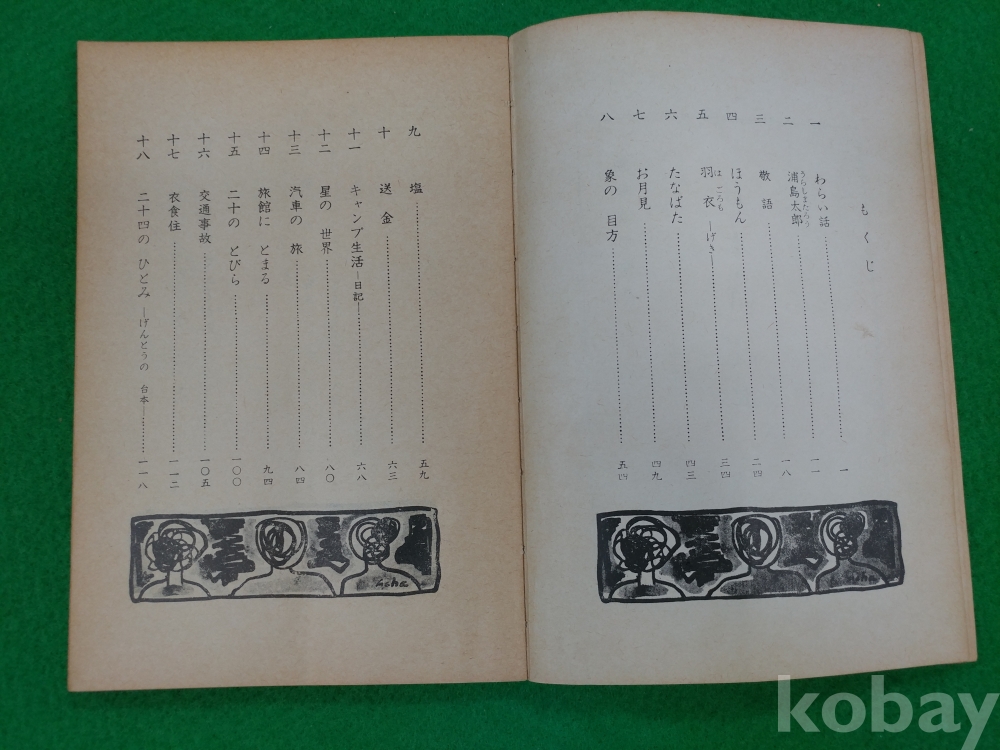 もくじ
一 わらい話 一
二 浦島太郎 うらしまたろう 一一
三 敬語 一八
四 ほうもん 二四
五 羽衣 はごろも —げき— 三四
六 たなばた 四三
七 お月見 四九
八 象の 目方 五四
九 塩 五九
十 送金 六三
十一 キャンプ生活 —日記— 六八
十二 星の 世界 八〇
十三 汽車の 旅 八四
十四 旅館に とまる 九四
十五 二十の とびら 一〇〇
十六 交通事故 一〇五
十七 衣食住 一一二
十八 二十四の ひとみ —げんとうの 台本— 一一八
kobay